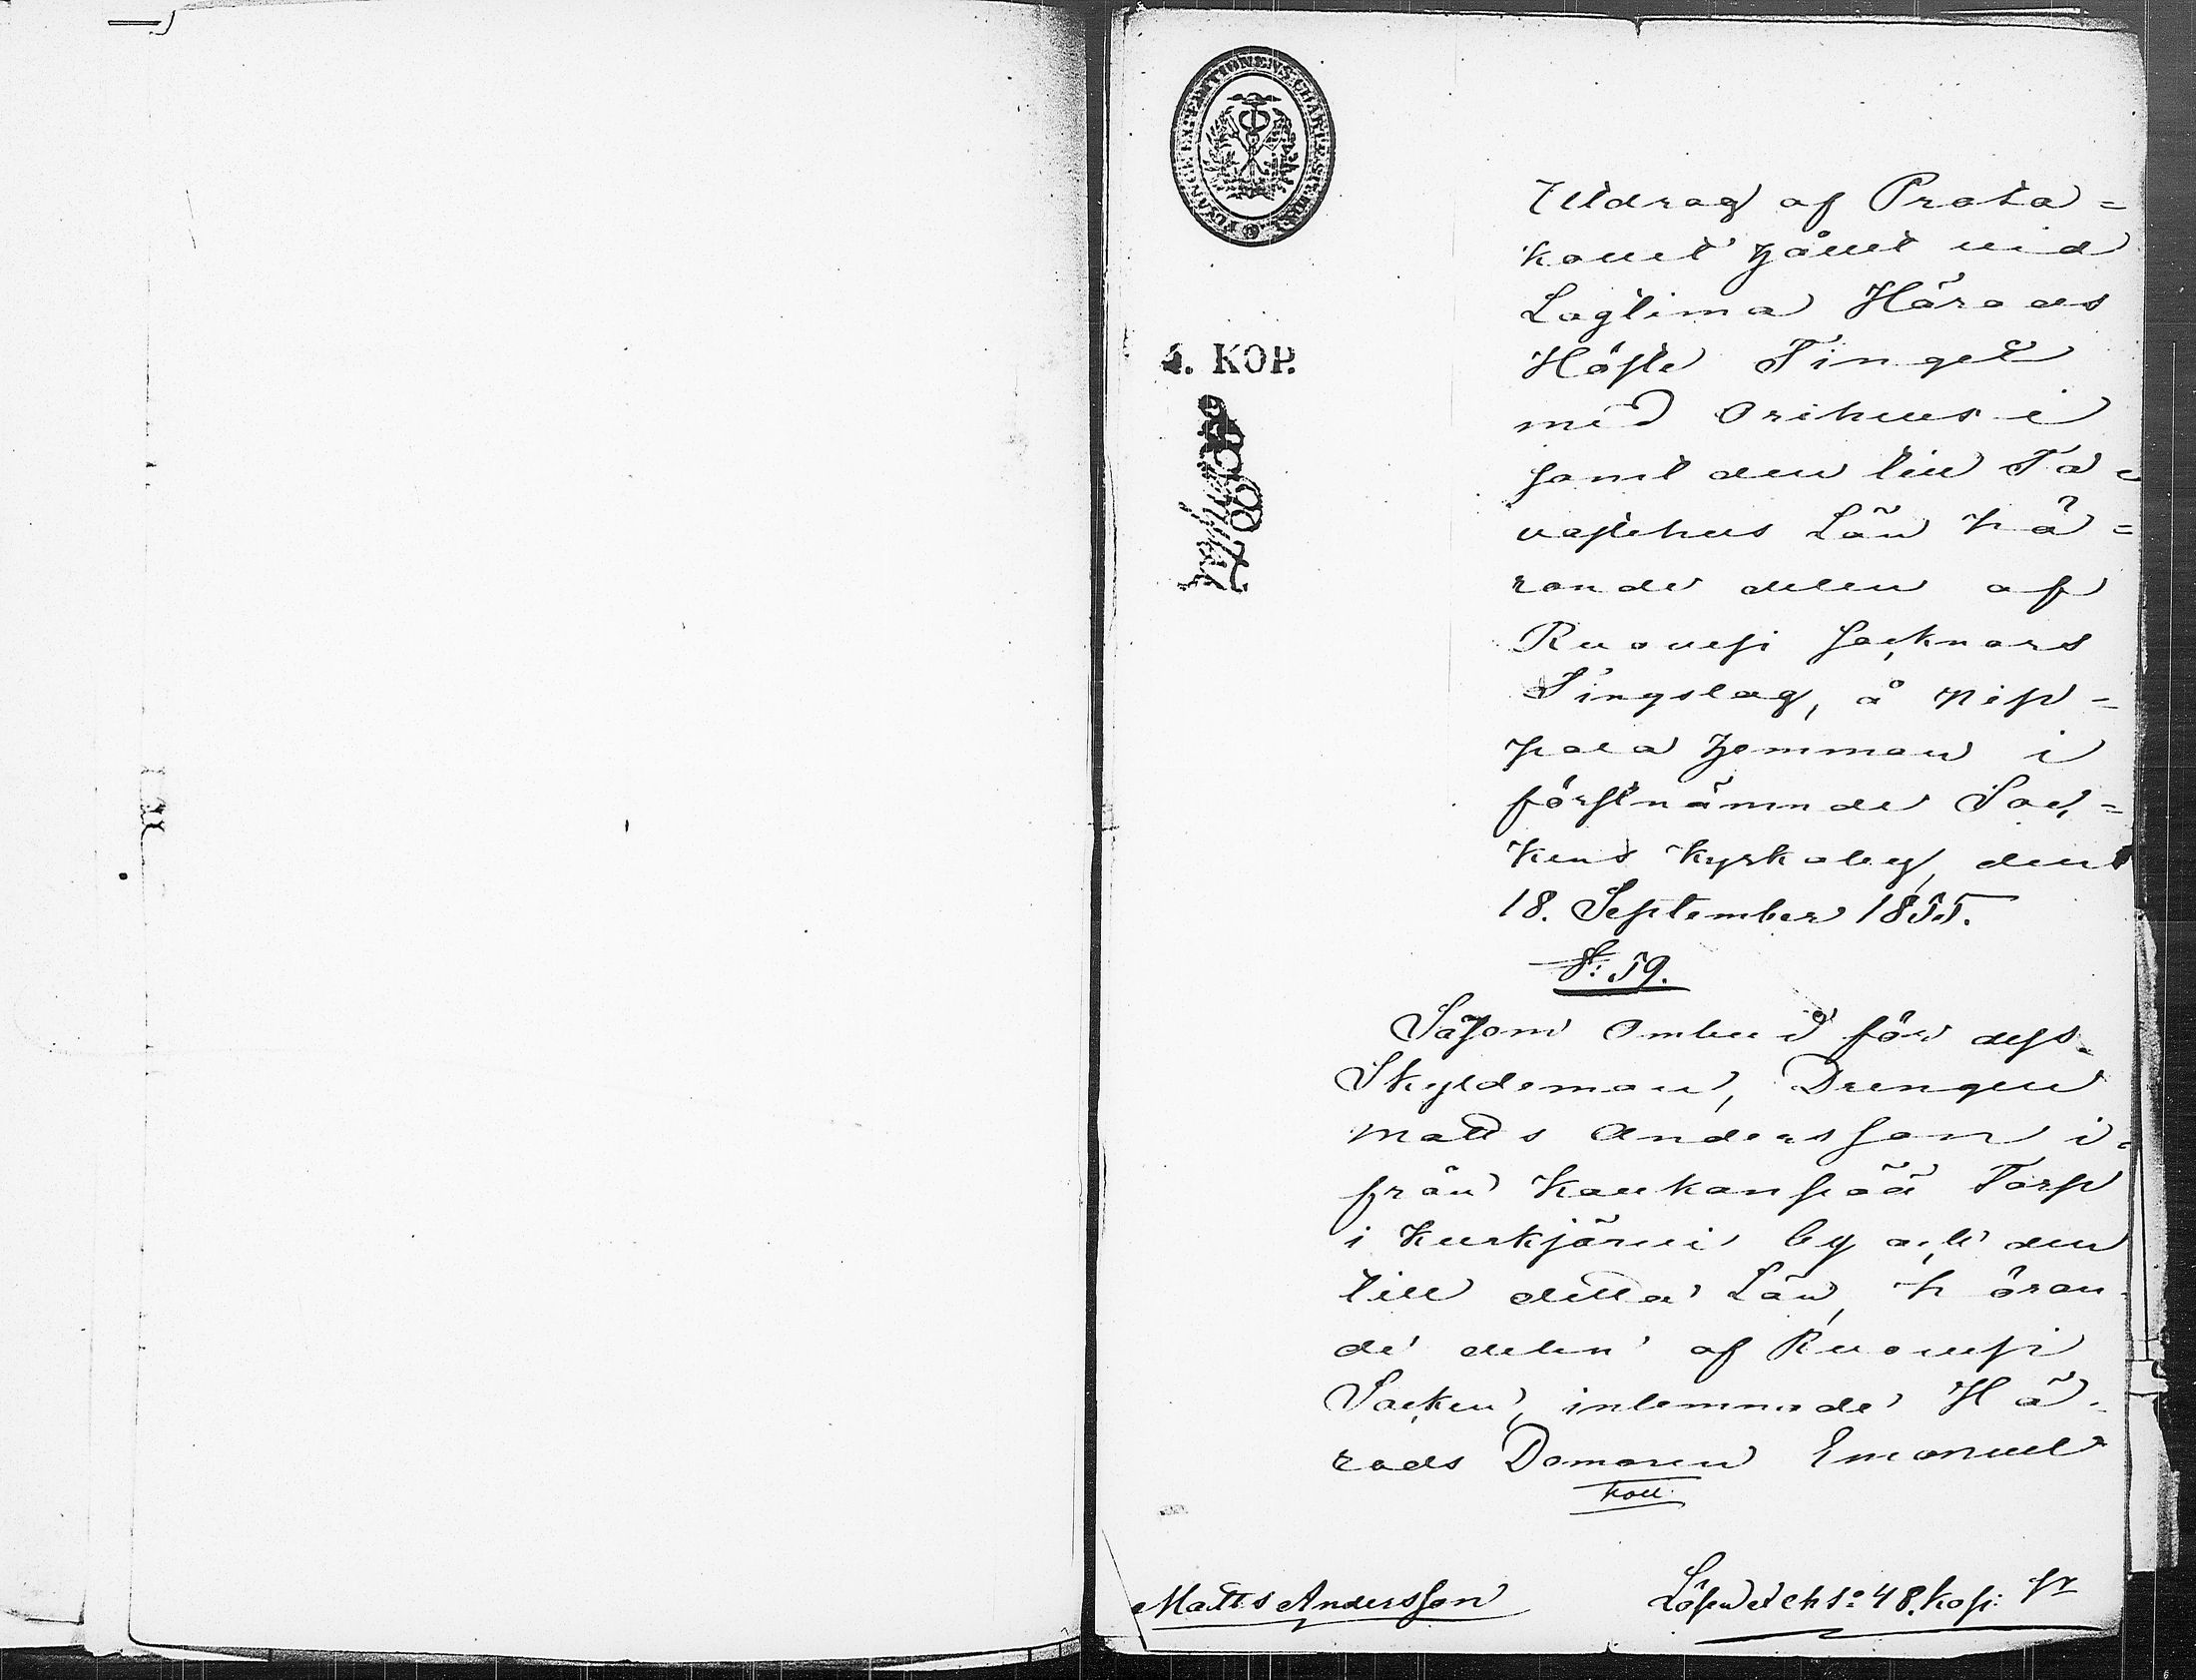 FINANCE EXPEDITIONENS CHARTÆ SIGILLAT
4. KOP.
Utdrag af Proto=
kollet hållet vid
Lagtima Härads
Höste Tinget
med Orihvesi
samt den till Ta=
vastehus Län hö=
rande delen af
Ruovesi Socknars
Tingslag, å Pip=
pola hemman i
förstnämnde Soc=
kens Kyrkoby, den
18. September 1855.
§: 59.
Såsom Ombud för dess
Skyldeman, Drengen
Matts Andersson i-
från Kaukanpää Torp
i Kurkjärvi by och den
till detta Län, höran-
de delen af Ruovesi
Socken, inlemnade Hä-
rads Domaren Emanuel
Koll
Matts Andersson
Lösen et chs: 48. kop: Sr